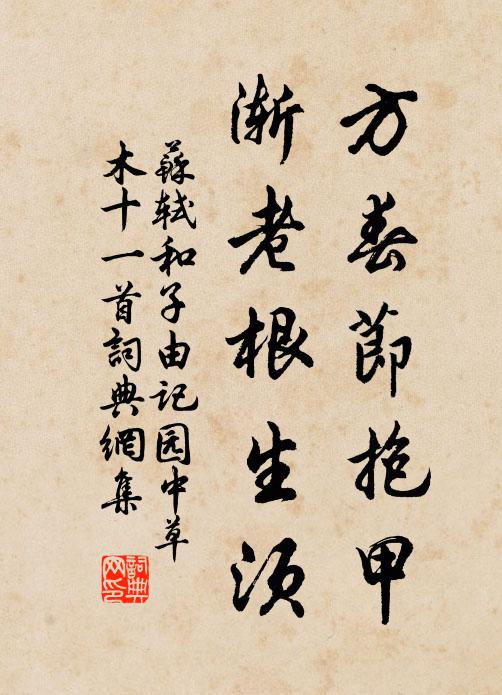 方春節抱甲
渐老根生须
蘇軾和子由记园中草
木十一首詞典網集
詞典网印